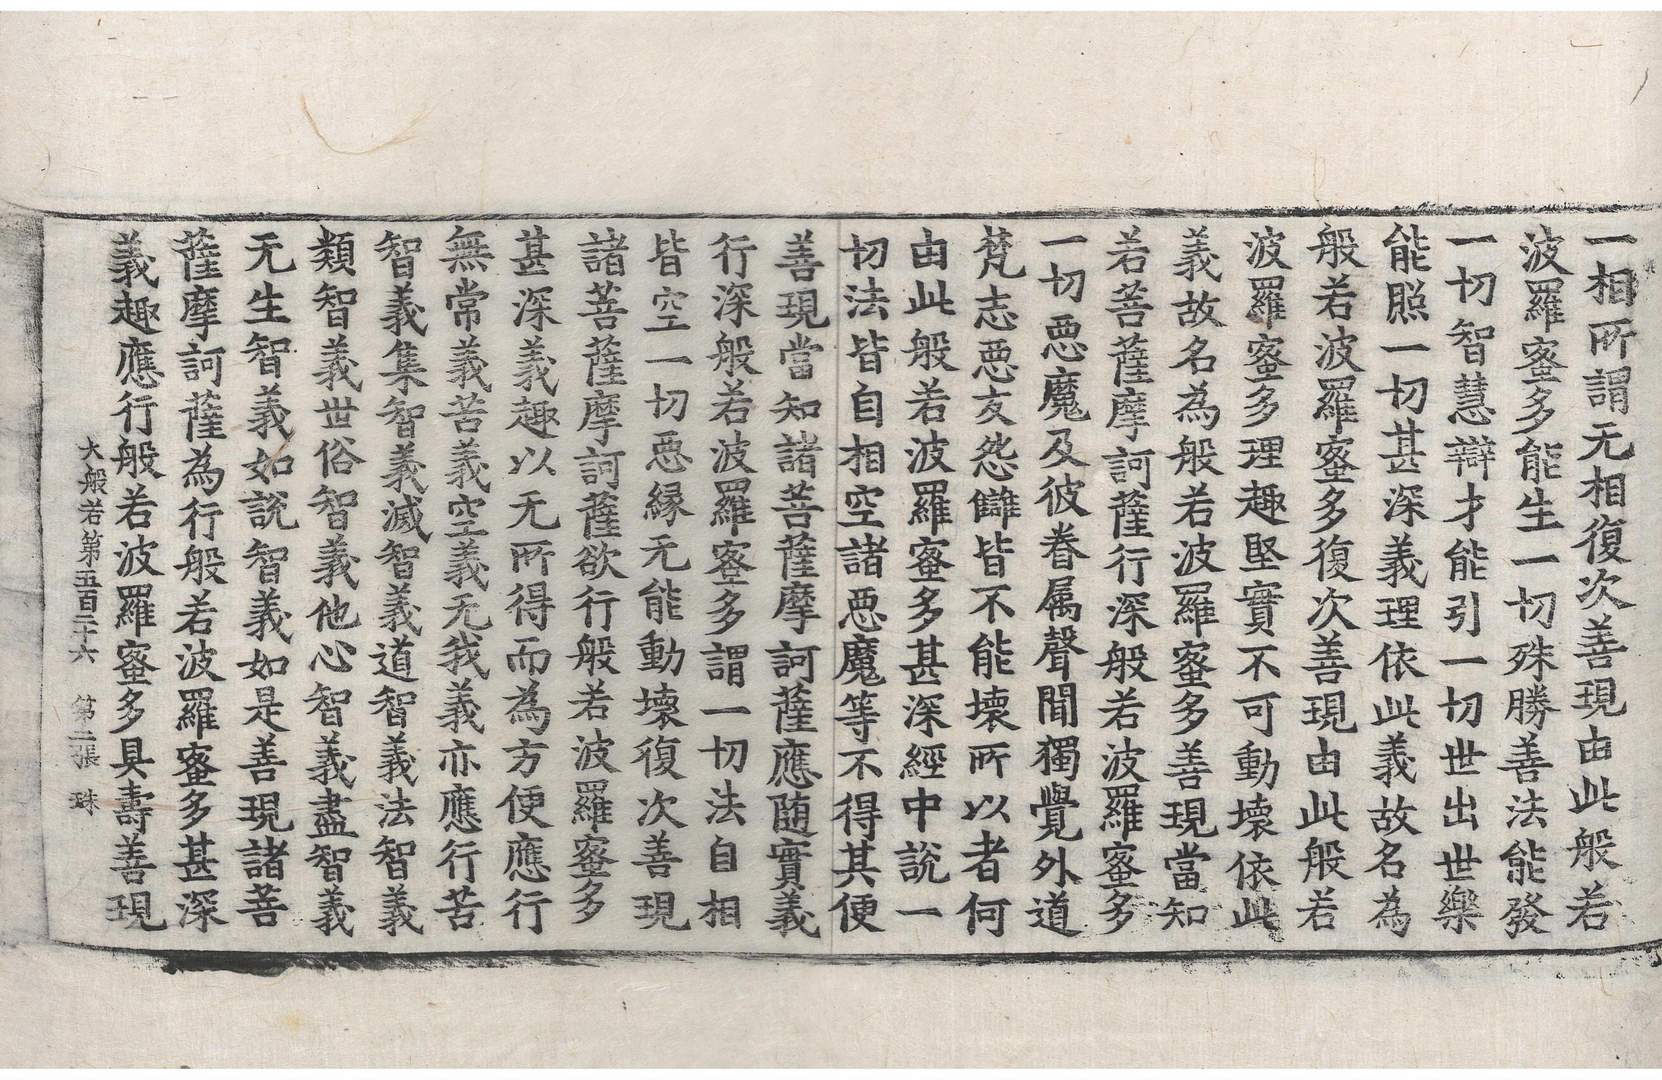 一相所謂无相復次善現由此般若
波羅蜜多能生一切殊勝善法能發
一切智慧辯才能引一切世出世樂
能照一切甚深義理依此義故名為
般若波羅蜜多復次善現由此般若
波羅蜜多理趣堅實不可動壞依此
義故名為般若波羅蜜多善現當知
若菩薩摩訶薩行深般若波羅蜜多
一切悪魔及彼眷属聲聞獨覺外道
梵志悪友怨讎皆不能壞所以者何
由此般若波羅蜜多甚深經中說一
切法皆自相空諸悪魔等不得其便
善現當知諸菩薩摩訶薩應随實義
行深般若波羅蜜多謂一切法自相
皆空一切悪緣无能動壞復次善現
諸菩薩摩訶薩欲行般若波羅蜜多
甚深義趣以无所得而為方便應行
無常義苦義空義无我義亦應行苦
智義集智義滅智義道智義法智義
類智義世俗智義他心智義盡智義
无生智義如說智義如是善現諸菩
薩摩訶薩為行般若波羅蜜多甚深
義趣應行般若波羅蜜多具壽善現
大般若第五百二十六 第二張 珠